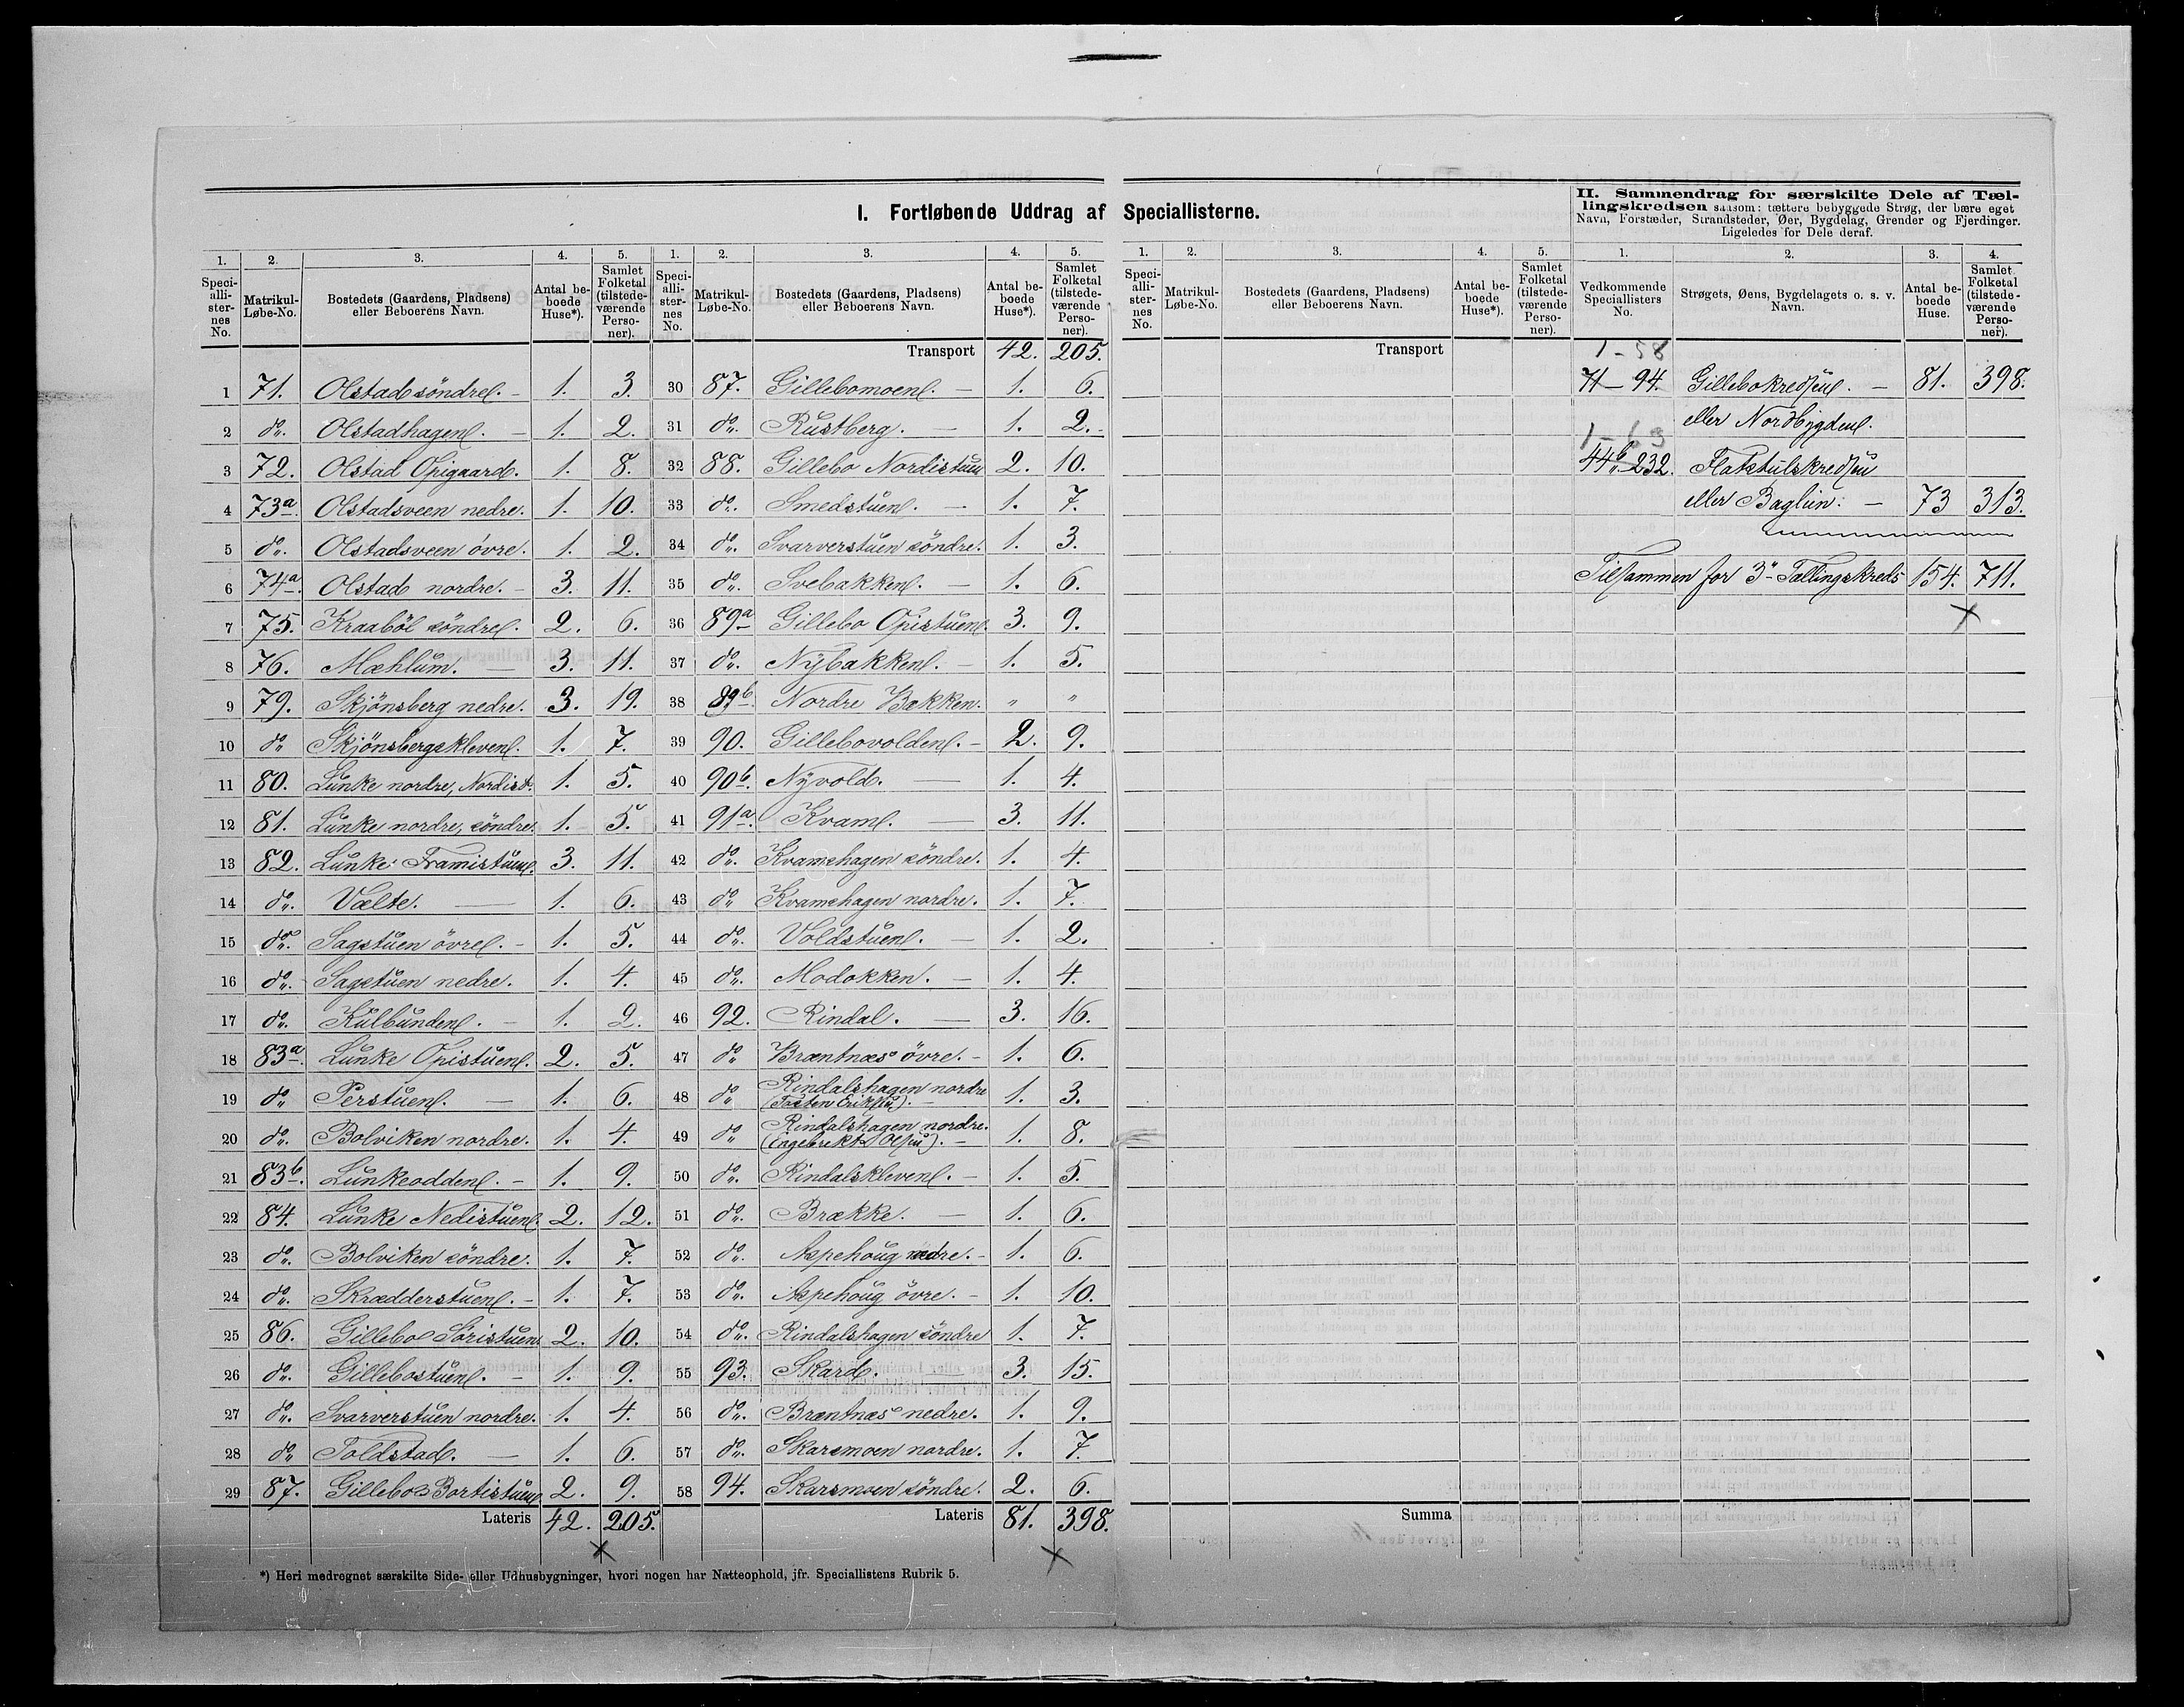 I. Fortløbende Uddrag af Speciallisterne.
II. Sammendrag for særskilte Dele af Tæl-
lingskredsen saasom: tættere bebyggede Strøg, der bære eget
Navn, Forstæder, Strandsteder, Øer, Bygdelag, Grender og Fjerdinger.
Ligeledes for Dele deraf.
1. 2. 3. 4. 5.
Speciallisternes No. Matrikul-Løbe-No. Bostedets (Gaardens, Pladsens) eller Beboerens Navn. Antal beboede Huse*). Samlet Folketal (tilstedeværende Personer).
1 71. Olstad söndre. - 1. 3.
2 do. Olstadhagen. - 1. 2.
3 72. Olstad Opigaard. 1. 8.
4 73a. Olstadsveen nedre. 1. 10.
5 do. Olstadsveen övre. 1. 2.
6 74a. Olstad nordre. - 3. 11.
7 75. Kraaböl söndre. 2. 6.
8 76. Mæhlum. - 3. 11.
9 79. Skjönsberg nedre. 3. 19.
10 do Skjönsbergskleven. 1. 7.
11 80. Lunke nordre, Nordist. 1. 5.
12 81. Lunke nordre, söndre. 1. 5.
13 82. Lunke Framistuen. 3. 11.
14 do. Vælte. - 1. 6.
15 do. Sagstuen övre. - 1. 5.
16 do. Sagstuen nedre. 1. 4.
17 do. Kulbunden. - 1. 2.
18 83a. Lunke Opistuen. 2. 5.
19 do Perstuen. - 1. 6.
20 do. Bolviken nordre. 1. 4.
21 83b. Lunkeodden. - 1. 9.
22 84. Lunke Nedistuen. 2. 12.
23 do. Bolviken söndre. 1. 7.
24 do. Skrædderstuen. - 1. 7.
25 86. Gillebo Söristuen. 2. 10.
26 do. Gillebostuen. - 1. 9.
27 do. Svarverstuen nordre. 1. 4.
28 do Toldstad. - 1. 6.
29 87. Gillebo Bortistuen 2. 9.
Lateris 42. 205.
1. 2. 3. 4. 5.
Speciallisternes No. Matrikul-Løbe-No. Bostedets (Gaardens, Pladsens) eller Beboerens Navn. Antal beboede Huse*). Samlet Folketal (tilstedeværende Personer).
Transport 42. 205.
30 87. Gillebomoen. - 1. 6.
31 do. Rustberg. - 1. 2.
32 88. Gillebo Nordistuen 2. 10.
33 do. Smedstuen. - 1. 7.
34 do. Svarverstuen söndre. 1. 3.
35 do. Svebakken. - 1. 6.
36 89a Gillebo Opistuen. 3. 9.
37 do. Nybakken. - 1. 5.
38 89b. Nordre Bakken. " "
39 90. Gillebovolden. - 2. 9.
40 90b. Nyvold. - 1. 4.
41 91a. Kvam. - 3. 11.
42 do. Kvamshagen söndre. 1. 4.
43 do Kvamshagen nordre. 1. 7.
44 do. Voldstuen. - 1. 2.
45 do. Modokken. - 1. 4.
46 92. Rindal. - 3. 16.
47 do Bræntnæs övre. - 1. 6.
48 do Rindalshagen nordre
(Tosten Eriksen). - 1. 3.
49 do Rindalshagen nordre.
(Engebrikt Olsen). - 1. 8.
50 do. Rindalskleven. - 1. 5.
51 do. Brække. - 1. 6.
52 do. Aspehoug nedre. - 1. 6.
53 do. Aspehoug övre. - 1. 10.
54 do. Rindalshagen söndre 1. 7.
55 93. Skard. - 3. 15.
56 do. Bræntnæs nedre. 1. 9.
57 do. Skarsmoen nordre. 1. 7.
58 94. Skarsmoen söndre. 2. 6.
Lateris 81. 398.
1. 2. 3. 4. 5.
Speciallisternes No. Matrikul-Løbe-No. Bostedets (Gaardens, Pladsens) eller Beboerens Navn. Antal beboede Huse*). Samlet Folketal (tilstedeværende Personer).
Transport
Summa
1. 2. 3. 4.
Vedkommende Speciallisters No. Strøgets, Øens, Bygdelagets o. s. v. Navn. Antal beboede Huse. Samlet Folketal (tilstedeværende Personer).
1-58
71-94. Gillebokredsen. - 81. 398.
eller Nordbygden.
44b-232. Flakstulskredsen
eller Baglien. - 73 313.
Tilsammen for 3die Tællingskreds 154. 711.
*) Heri medregnet særskilte Side- eller Udhusbygninger, hvori nogen har Natteophold, jfr. Speciallistens Rubrik 5.